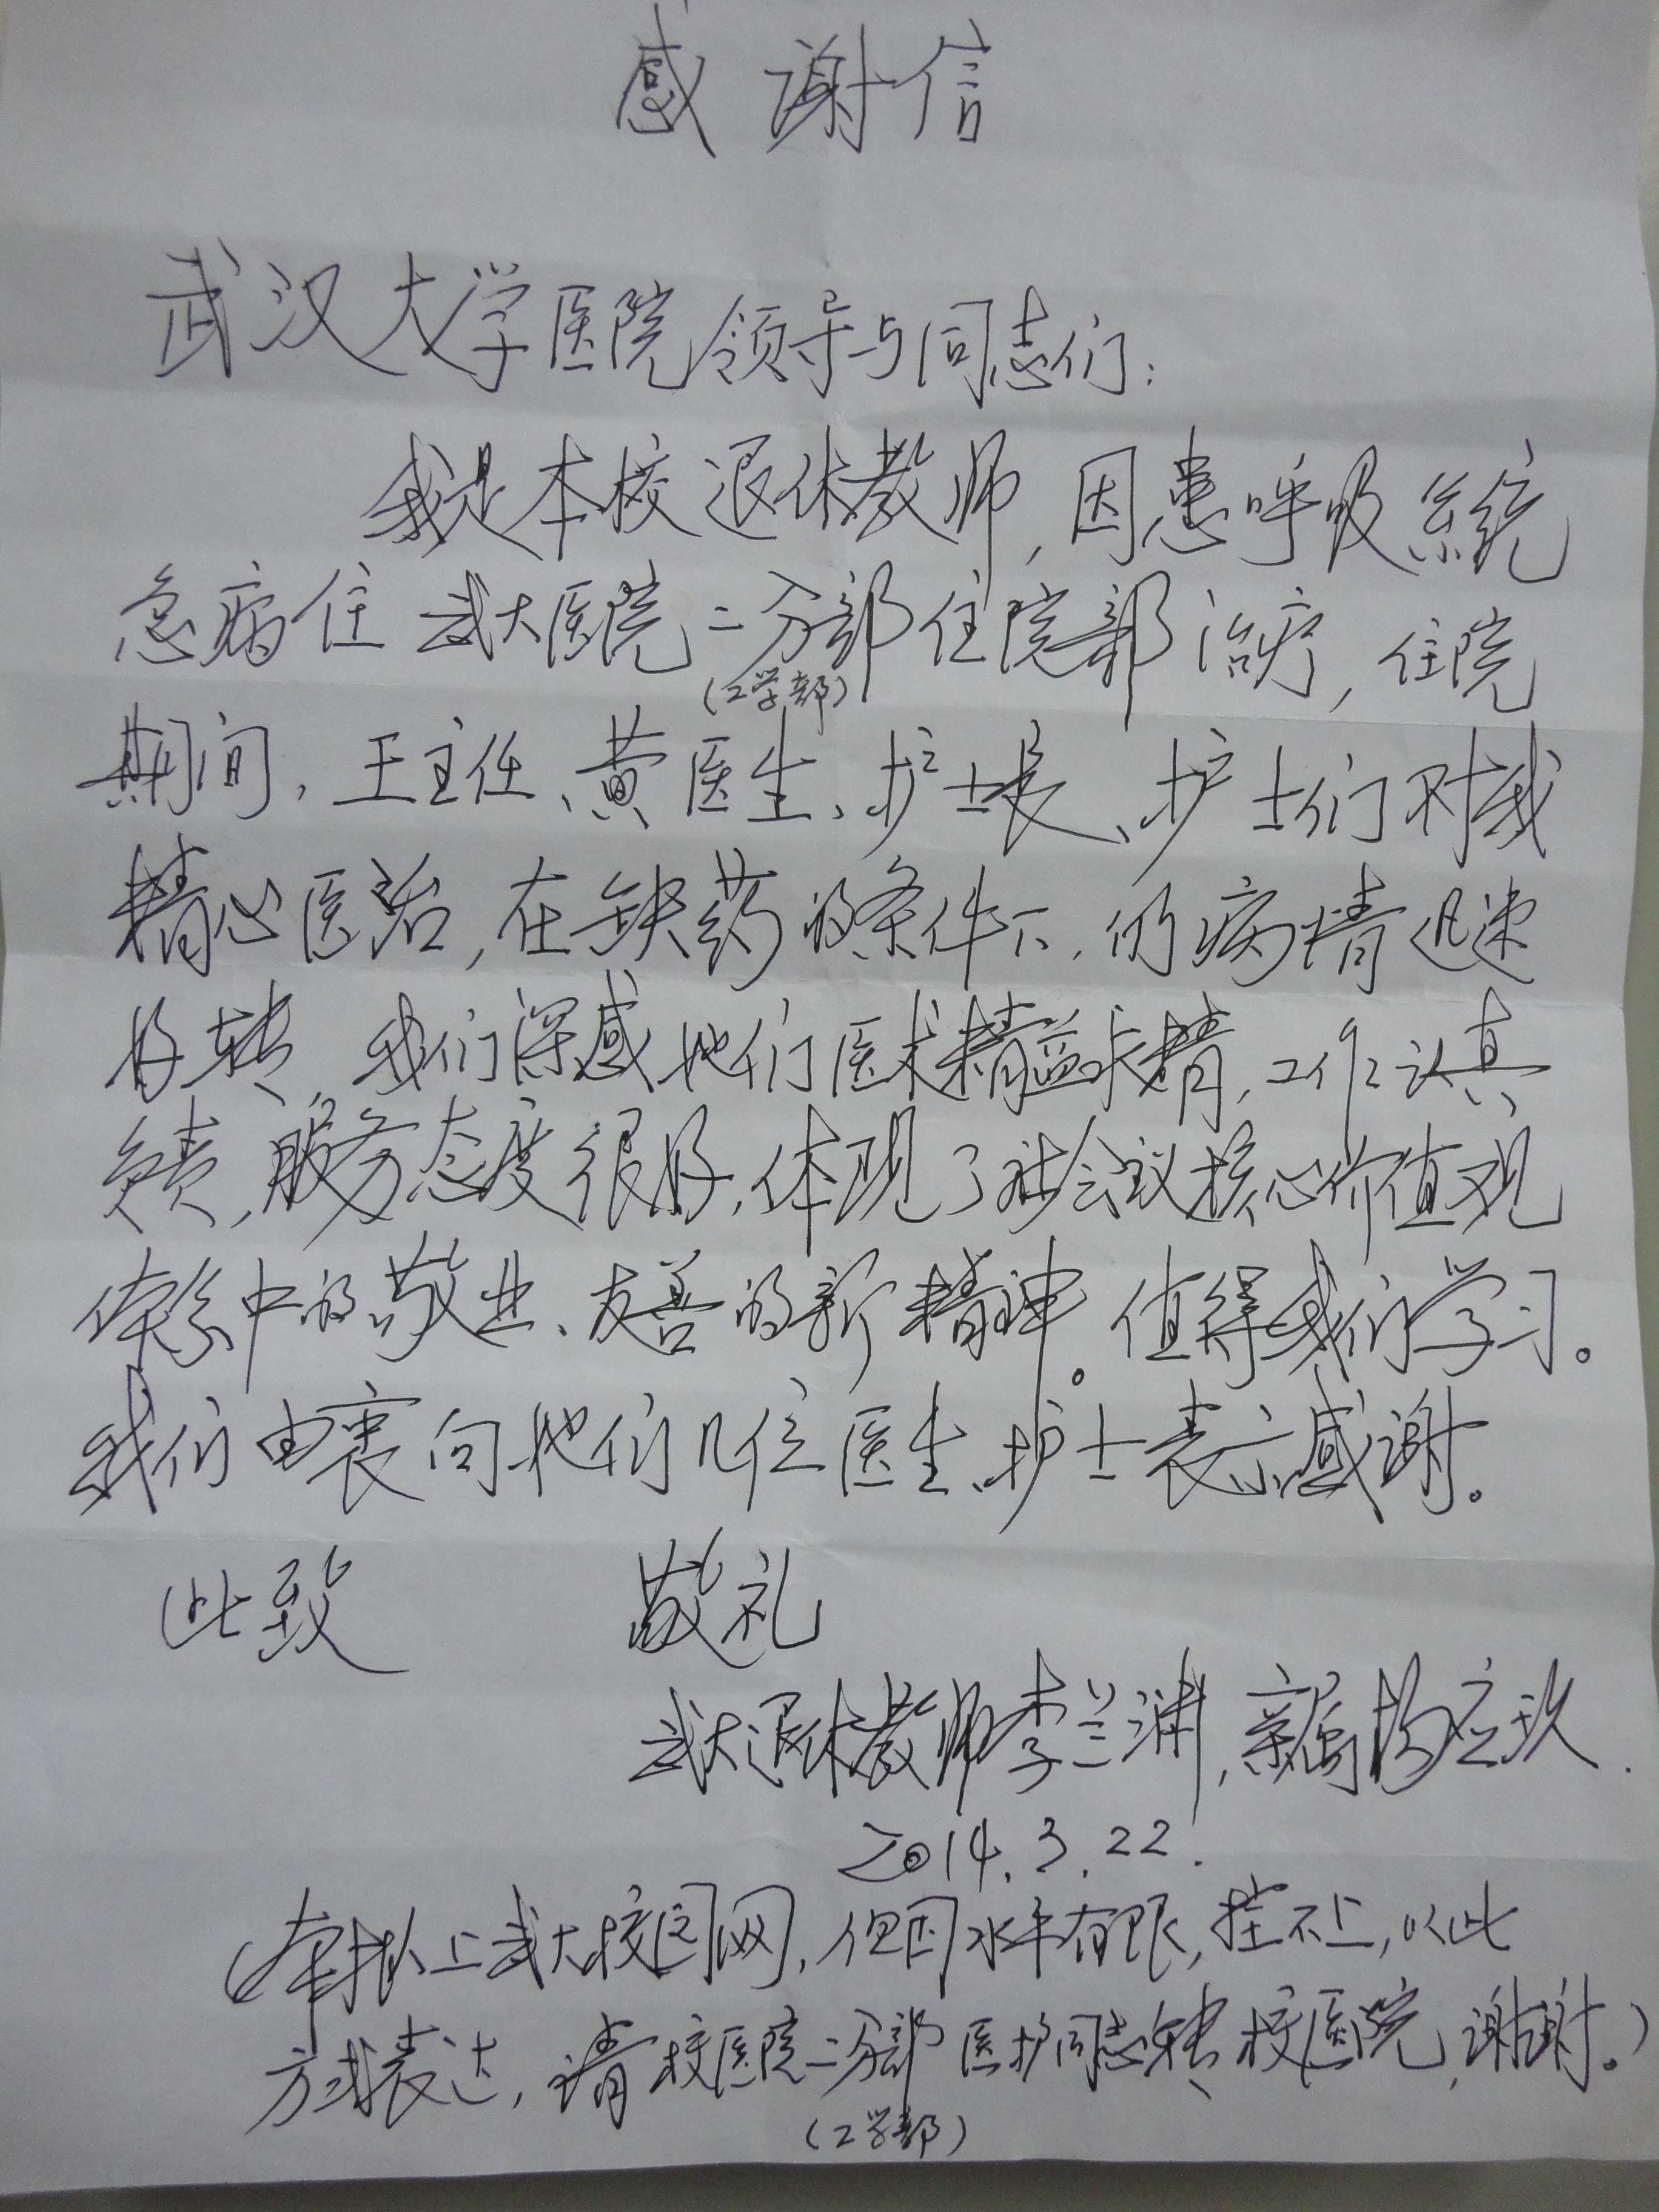 感谢信
武汉大学医院领导与同志们：
我是本校退休教师，因患呼吸系统
急病住武大医院二分部住院部治疗，住院
（工学部）
期间，王主任、黄医生、护士长、护士们对我
精心医治，在缺药的条件下，的病情迅速
好转，我们深感他们医术精益求精，工作认真
负责，服务态度很好，体现了社会议核心价值观
体系中的敬业、友善的新精神。值得我们学习。
我们由衷向他们几位医生、护士表示感谢。
此致 敬礼
武大退休教师李兰浦，亲属杨应玖.
2014.3.22.
（本拟上武大校园网，但因水平有限，挂不上，以此
方式表达，请校医院二分部医护同志转校医院，谢谢。）
（工学部）